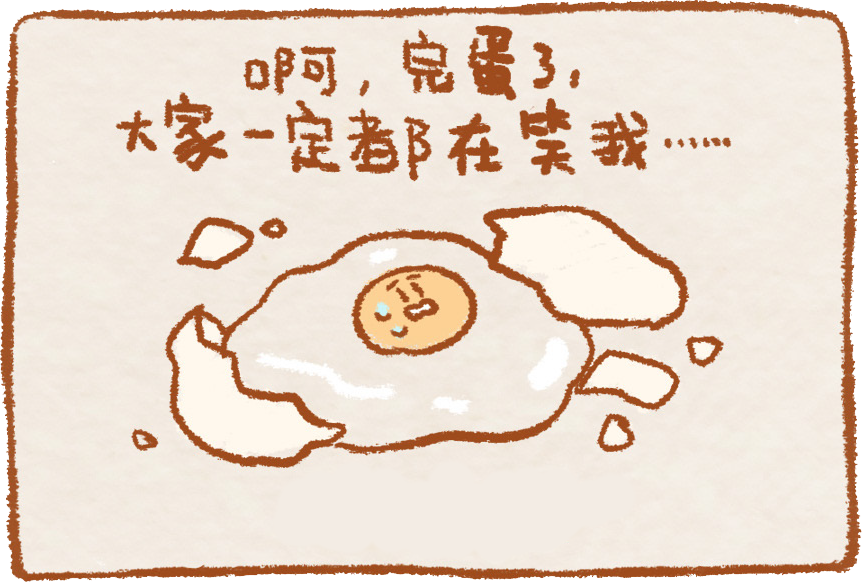 啊，完蛋了，
大家一定都在笑我……